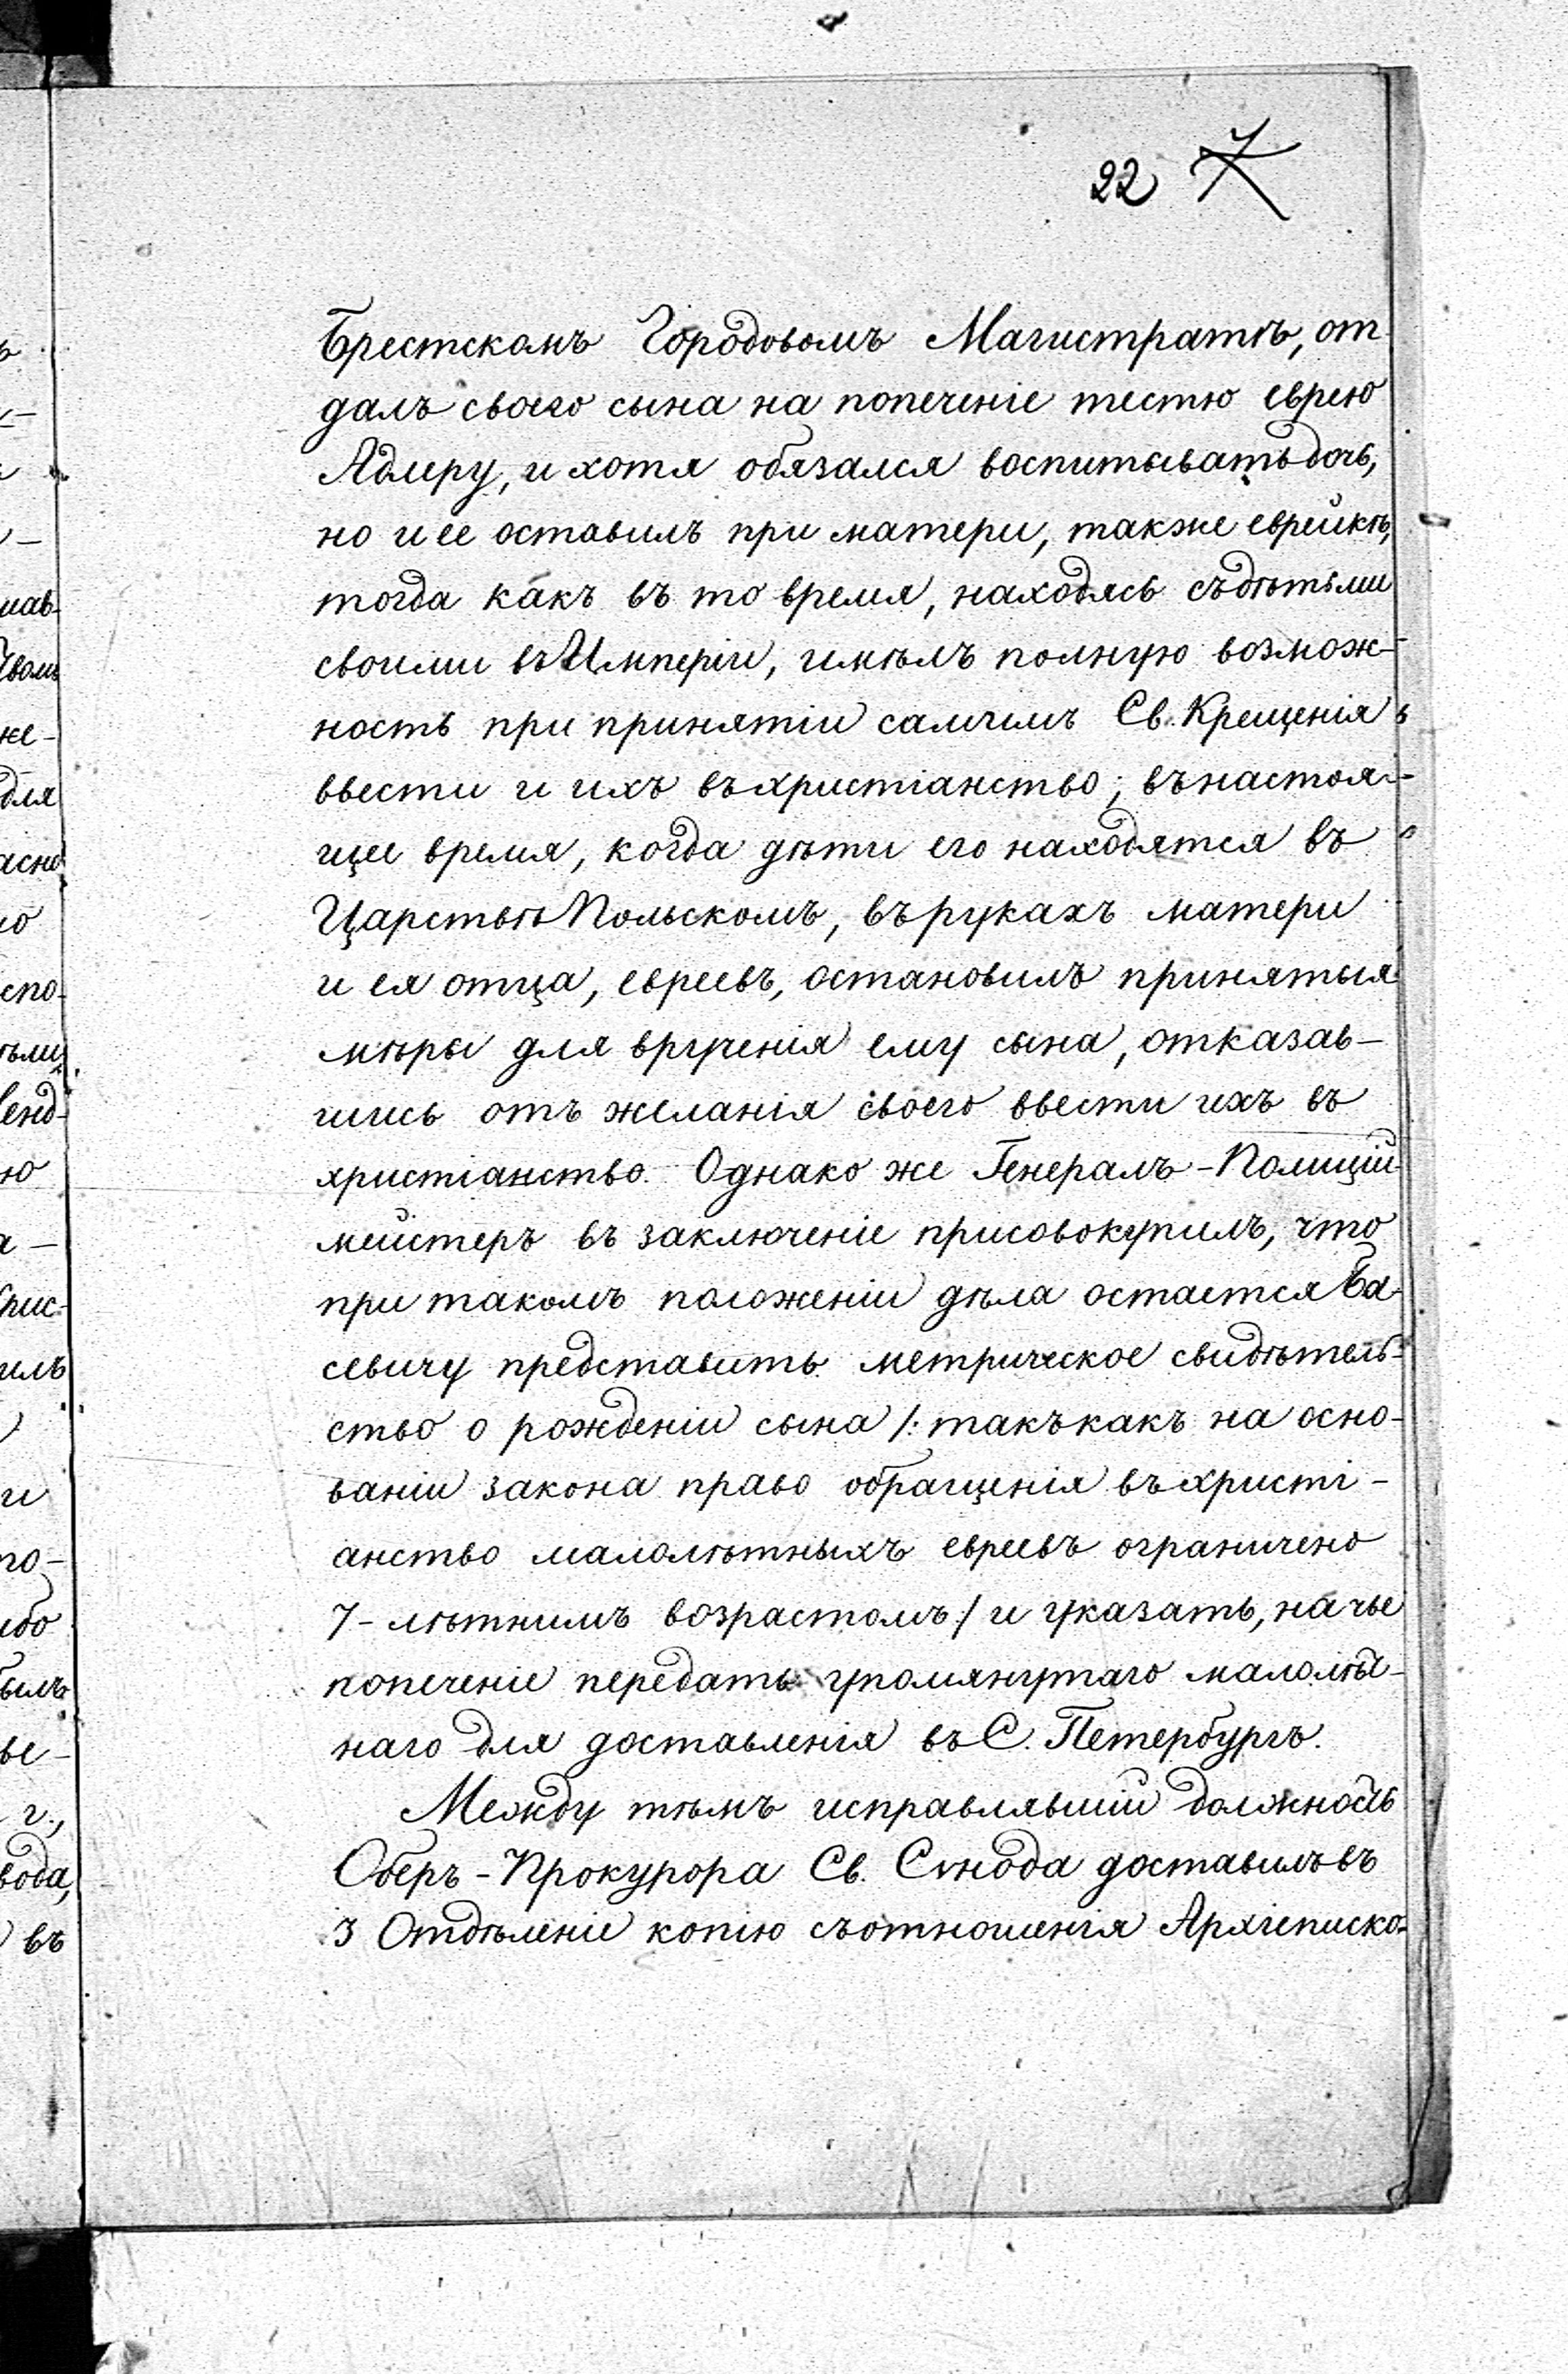 22 7
Брестскомъ Городовомъ Магистратѣ, от
далъ своего сына на попеченіе тестю еврею
Адлеру, и хотя обязался воспитывать дочь,
но и ее оставилъ при матери, также еврейкѣ,
тогда какъ въ то время, находясь съ дѣтьми
своими въ Имперіи, имѣлъ полную возмож-
ность при принятіи самимъ Св. Крещенія
ввести и ихъ въ христіанство; въ настоя-
щее время, когда дѣти его находятся въ
Царствѣ Польскомъ, въ рукахъ матери
и ея отца, евреевъ, остановилъ принятыя
мѣры для врученія ему сына, отказав-
шись отъ желанія своего ввести ихъ въ
христіанство. Однако же Генералъ-Полиціи-
мейстеръ въ заключеніе присовокупилъ, что
при такомъ положеніи дѣла остается Ба-
севичу представить метрическое свидѣтель-
ство о рожденіи сына /: такъ какъ на осно-
ваніи закона право обращенія въ христі-
анство малолѣтныхъ евреевъ ограничено
7-лѣтнимъ возрастомъ :/ и указать, на чье
попеченіе передать упомянутаго малолѣт-
наго для доставленія въ С. Петербургъ.
Между тѣмъ исправлявшій должность
Оберъ-Прокурора Св. Сѵнода доставилъ въ
3 Отдѣленіе копію съ отношенія Архіеписко-